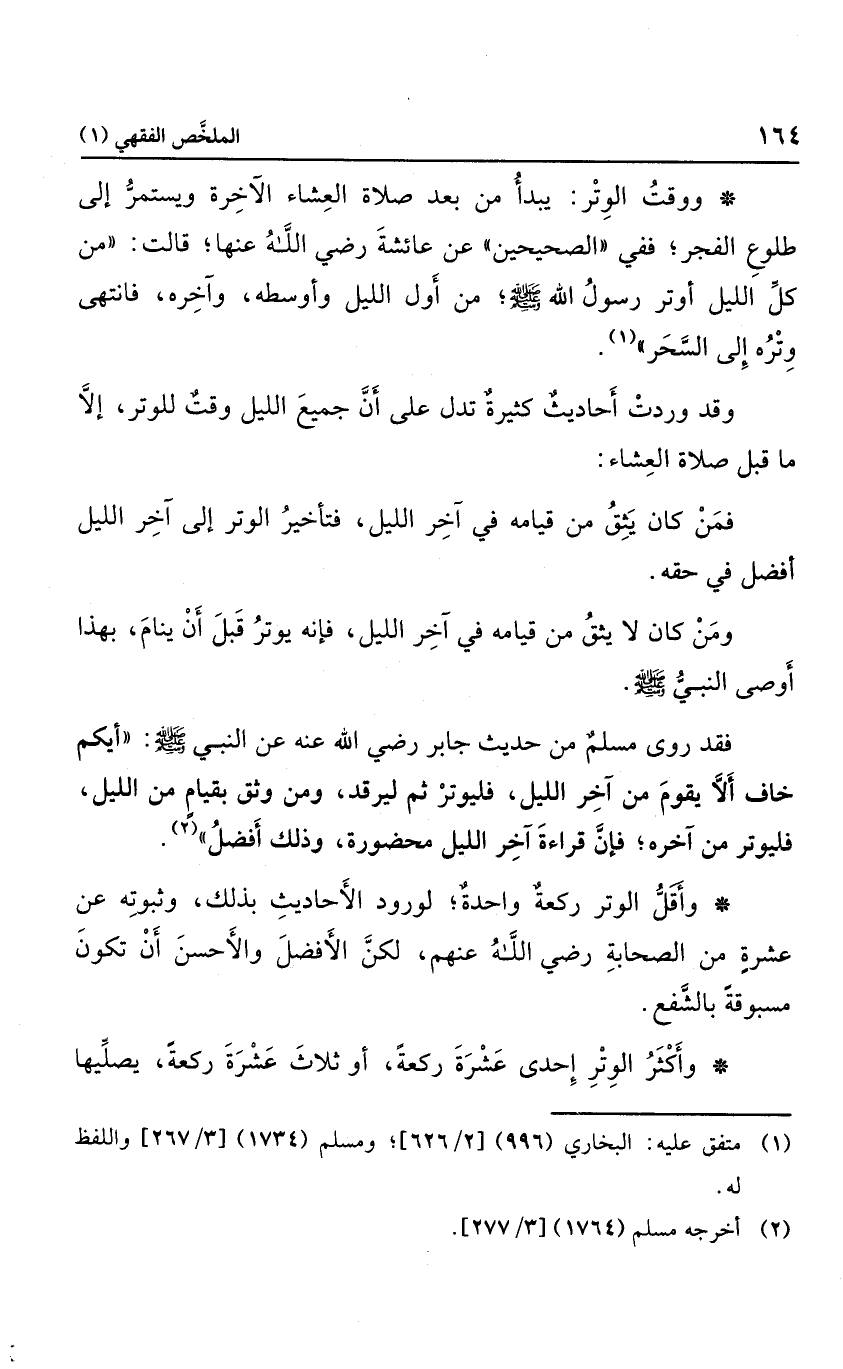 ١٦٤ الملخَّص الفقهي (١)
* ووقتُ الوِتْر: يبدأُ من بعد صلاة العِشاء الآخِرة ويستمرُّ إلى
طلوعِ الفجر؛ ففي «الصحيحين» عن عائشةَ رضي اللَّهُ عنها؛ قالت: «من
كلِّ الليل أوتر رسولُ الله ﷺ؛ من أَول الليل وأوسطه، وآخِره، فانتهى
وِتْرُه إلى السَّحَر»(١).
وقد وردتْ أَحاديثٌ كثيرةٌ تدل على أَنَّ جميعَ الليل وقتٌ للوتر، إلاَّ
ما قبل صلاة العِشاء:
فمَنْ كان يَثِقُ من قيامه في آخِر الليل، فتأخيرُ الوتر إلى آخِر الليل
أفضل في حقه.
ومَنْ كان لا يثقُ من قيامه في آخِر الليل، فإنه يوترُ قَبلَ أَنْ ينامَ، بهذا
أَوصى النبـيُّ ﷺ.
فقد روى مسلمٌ من حديث جابر رضي الله عنه عن النبـي ﷺ: «أيكم
خاف أَلاَّ يقومَ من آخِر الليل، فليوترْ ثم ليرقد، ومن وثق بقيامٍ من الليل،
فليوتر من آخره؛ فإنَّ قراءةَ آخِر الليل محضورة، وذلك أَفضلُ»(٢).
* وأَقَلُّ الوتر ركعةٌ واحدةٌ؛ لورود الأَحاديثِ بذلك، وثبوتِه عن
عشرةٍ من الصحابةِ رضي اللَّهُ عنهم، لكنَّ الأَفضلَ والأَحسنَ أَنْ تكونَ
مسبوقةً بالشَّفع.
* وأَكْثَرُ الوِتْرِ إِحدى عَشْرَةَ ركعةً، أو ثلاثَ عَشْرَةَ ركعةً، يصلِّيها
(١) متفق عليه: البخاري (٩٩٦) [٢/ ٦٢٦]؛ ومسلم (١٧٣٤) [٣/ ٢٦٧] واللفظ
له.
(٢) أخرجه مسلم (١٧٦٤) [٣/ ٢٧٧].